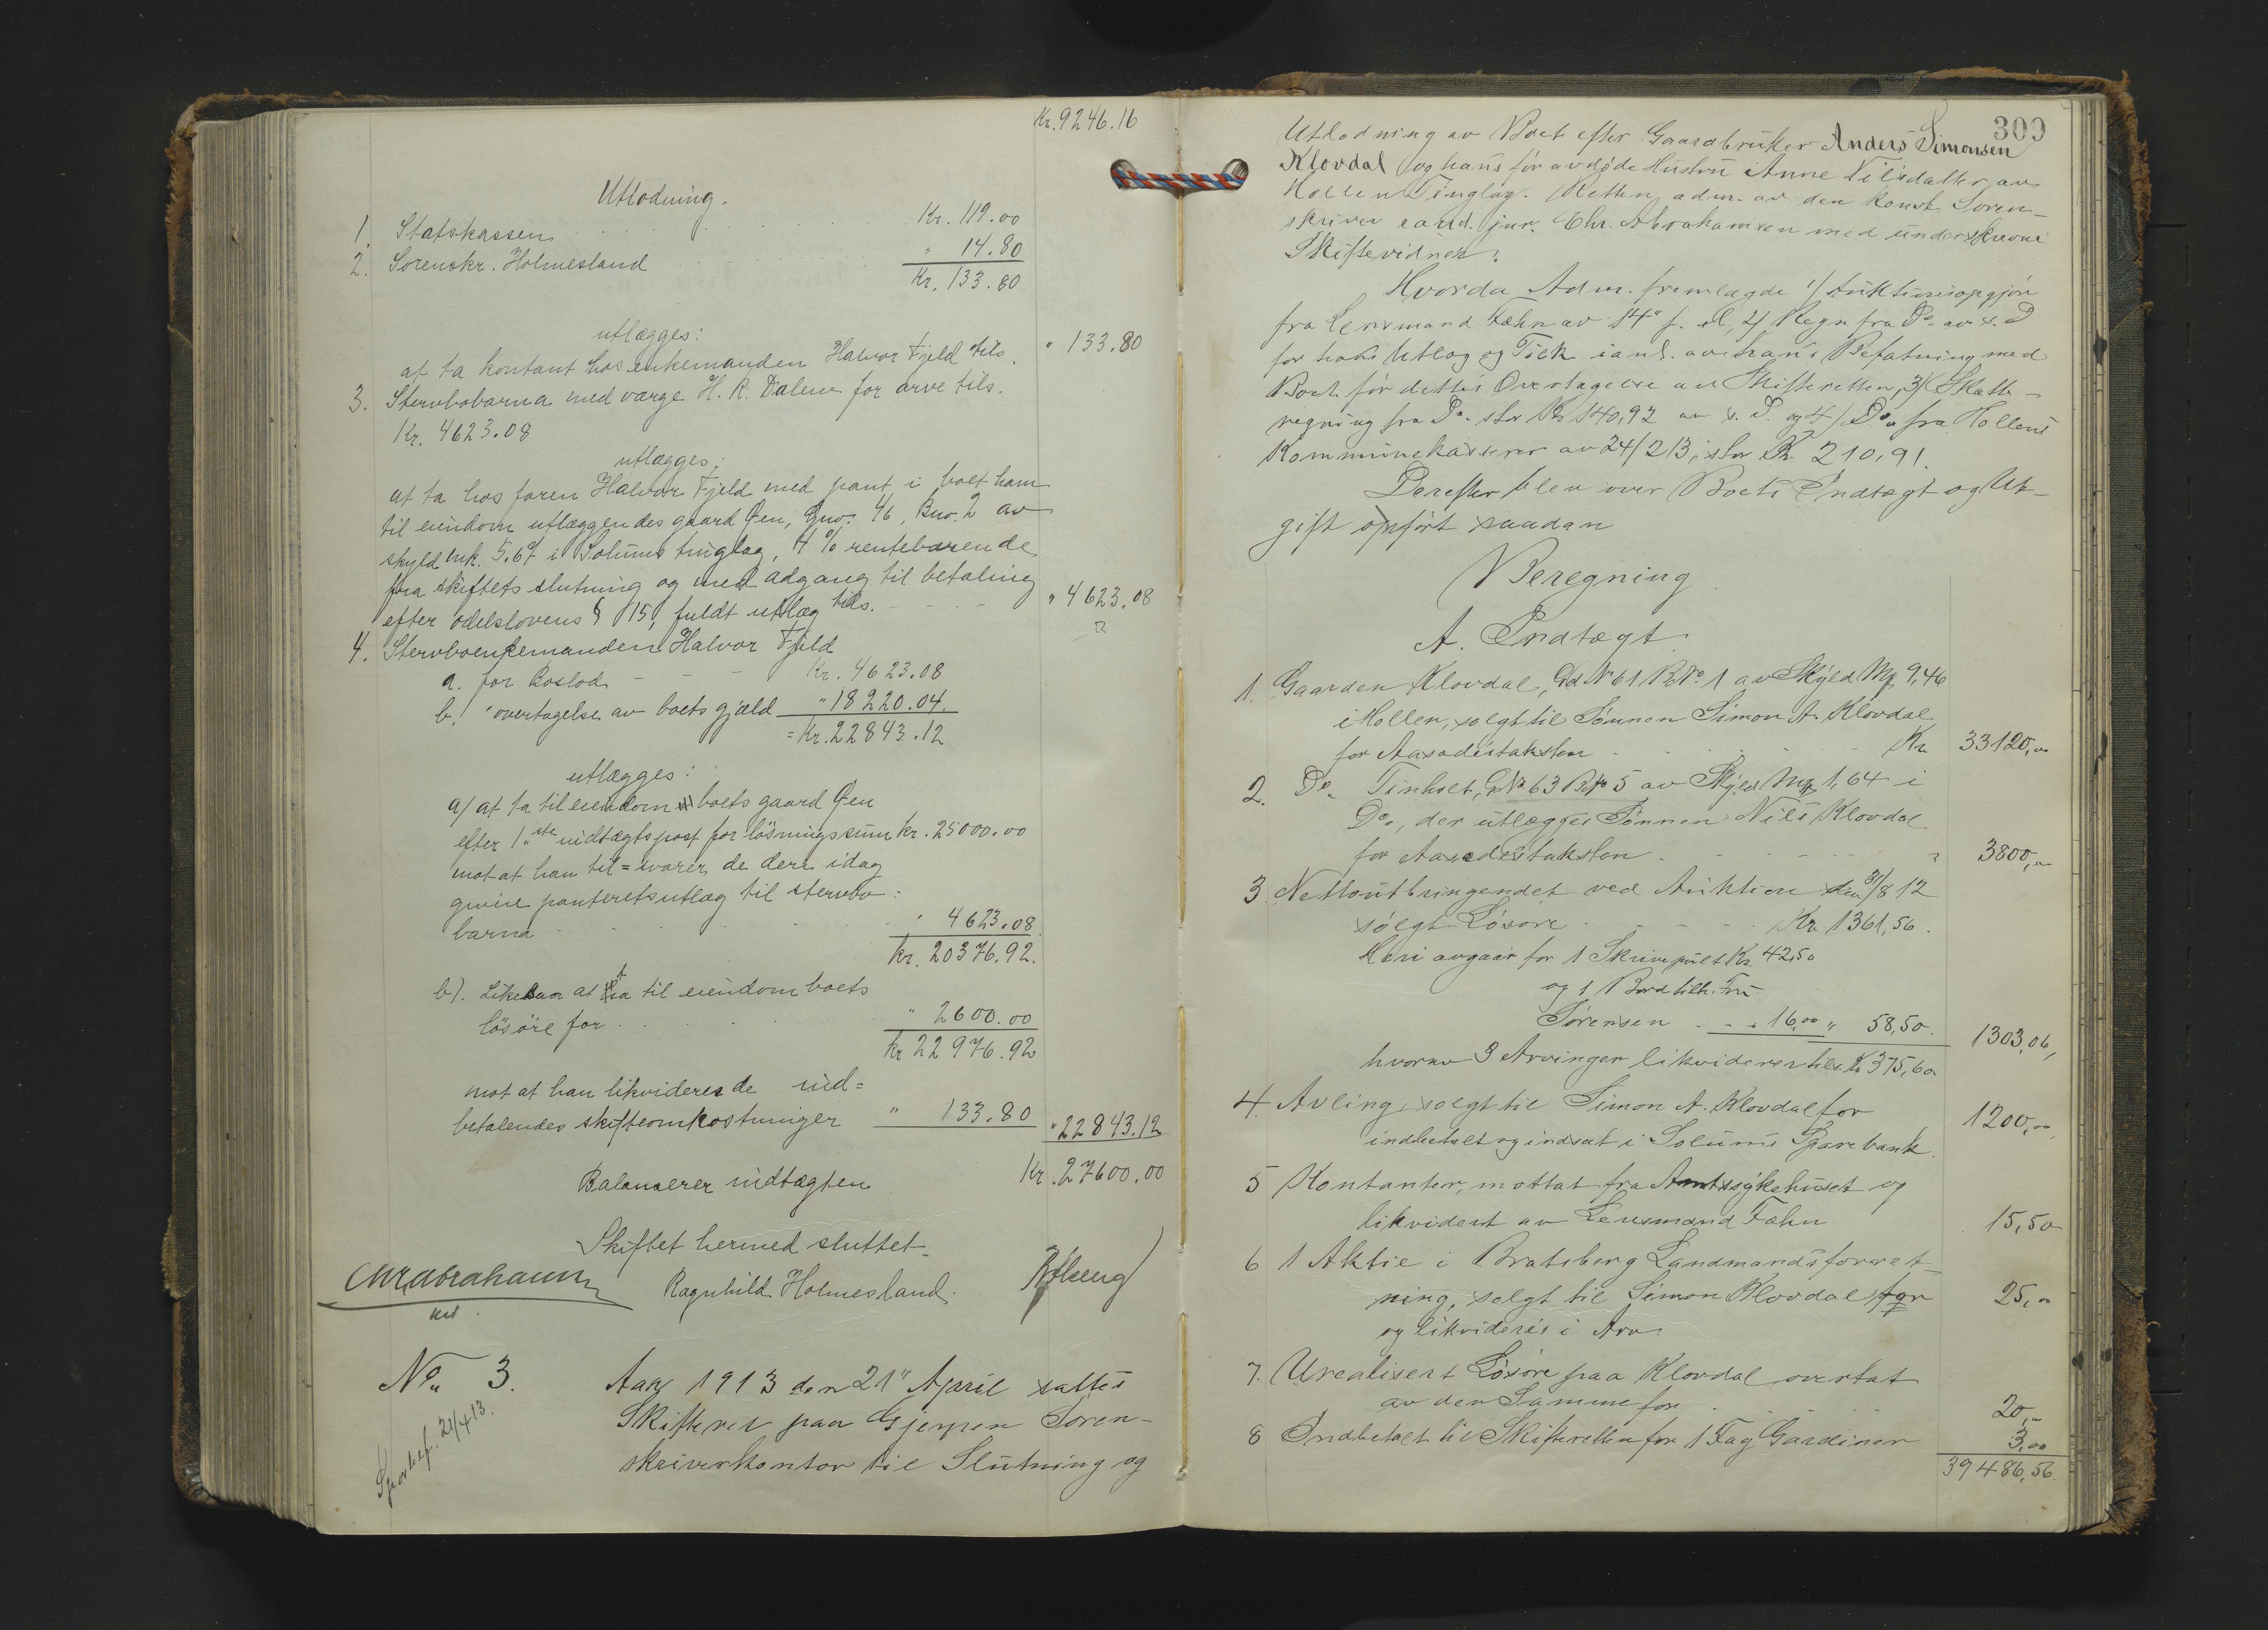 Kr. 9246.16
Utlodning.
1. Statskassen Kr. 119.00
2. Sorenskr. Holmesland " 14.80
Kr. 133.80
utlægges:
at ta kontant hos enkemanden Halvor Fjeld tils. " 133.80
3. Stervbobarna med værge H. R. Dalene for arve tils.
Kr. 4623.08
utlægges:
at ta hos faren Halvor Fjeld med pant i boet ham
til eiendom utlæggendes gaard Øen, Gno. 46, Bno. 2 av
skyld mk. 5.67 i Solums tinglag, 4 % rentebærende
fra skiftets slutning og med adgang til betaling
efter odelslovens § 15, fuldt utlæg tils. " 4623.08
4. Stervboenkemanden Halvor Fjeld
a. for Boslod Kr. 4623.08
b. " overtagelse av boets gjæld " 18220.04.
= Kr. 22843.12
utlægges:
a) at ta til eiendom boets gaard Øen
efter 1ste indtægtspost for løsningssum kr. 25000.00
mot at han til=svarer de deri idag
givne panteretsutlæg til stervbo-
barna " 4623.08
Kr. 20376.92.
b). Likesaa at ta til eiendom boets
løsøre for " 2600.00
Kr 22976.92
mot at han likviderer de ind=
betalendes skifteomkostninger " 133.80 " 22843.12
Balanserer indtægten Kr. 27600.00
Skiftet hermed sluttet.
Chr. Abrahamsen
kst.
Ragnhild Holmesland.
No. 3. Aar 1913 den 21" April sattes
Skifteret paa Gjerpen Soren-
skriverkontor til Slutning og
21/4 13.
309
Utlodning av Boet efter Gaardbruker Anders Simonsen
Klovdal og hans før avdøde Hustru Anne Nilsdatter av
Hollen Tinglag. Retten adm. av den konst. Soren-
skriver cand. jur. Chr. Abrahamsen med underskrevne
Skiftevidner.
Hvorda Adm. fremlagde 1/ Auktionsopgjør
fra Lensmand Fæhn av 14de f. M, 2/ Regn fra Do. av s. D
for hans Utlæg og Til i anl. av hans Befatning med
Boet før dettes Overtagelse av Skifteretten, 3/ Skatte-
regning fra Do. stor Kr 140,92 av s. D. og 4/ Do. fra Hollens
Kommunekasserer av 24/2 13, stor Kr. 210,91.
Derefter blev over Boets Indtægt og Ut-
gift opført saadan
Beregning
A. Indtægt.
1. Gaarden Klovdal, Gd No 61 BNo. 1 av Skyld Mk 9,46
i Hollen, solgt til Sønnen Simon A. Klovdal
for Aasædestaksten Kr. 33120,00
2. Do. Tinholt, GNo 63 BNo 5 av Skyld Mk 1,64 i
Do., der utlægges Sønnen Nils Klovdal
for Aasædestaksten " 3800,00
3. Nettoutbringendet ved Auktion den 31/8 12
solgt Løsøre Kr. 1361,56.
Heri avgaar for 1 Skrivepult Kr. 42,50
og 1 Bord tilh. Fru
Sørensen " 16,00 " 58,50. 1303,06,
hvorav 3 Arvinger likviderer tils. Kr 375,60
4. Avling, solgt til Simon A. Klovdal for 1200,00
indbetalt og indsat i Solums Sparebank.
5 Kontanter, mottat fra Amtssykehuset og
likvidert av Lensmand Fæhn 15,50
6 1 Aktie i Bratsberg Landmandsforret-
ning, solgt til Simon Klovdal for 25,00
og likvideres i Arv.
7. Urealisert Løsøre paa Klovdal overtat
av den Samme for 20,00
8 Indbetalt til Skifteretten for 1 Fag Gardiner 3,00
39486,56.